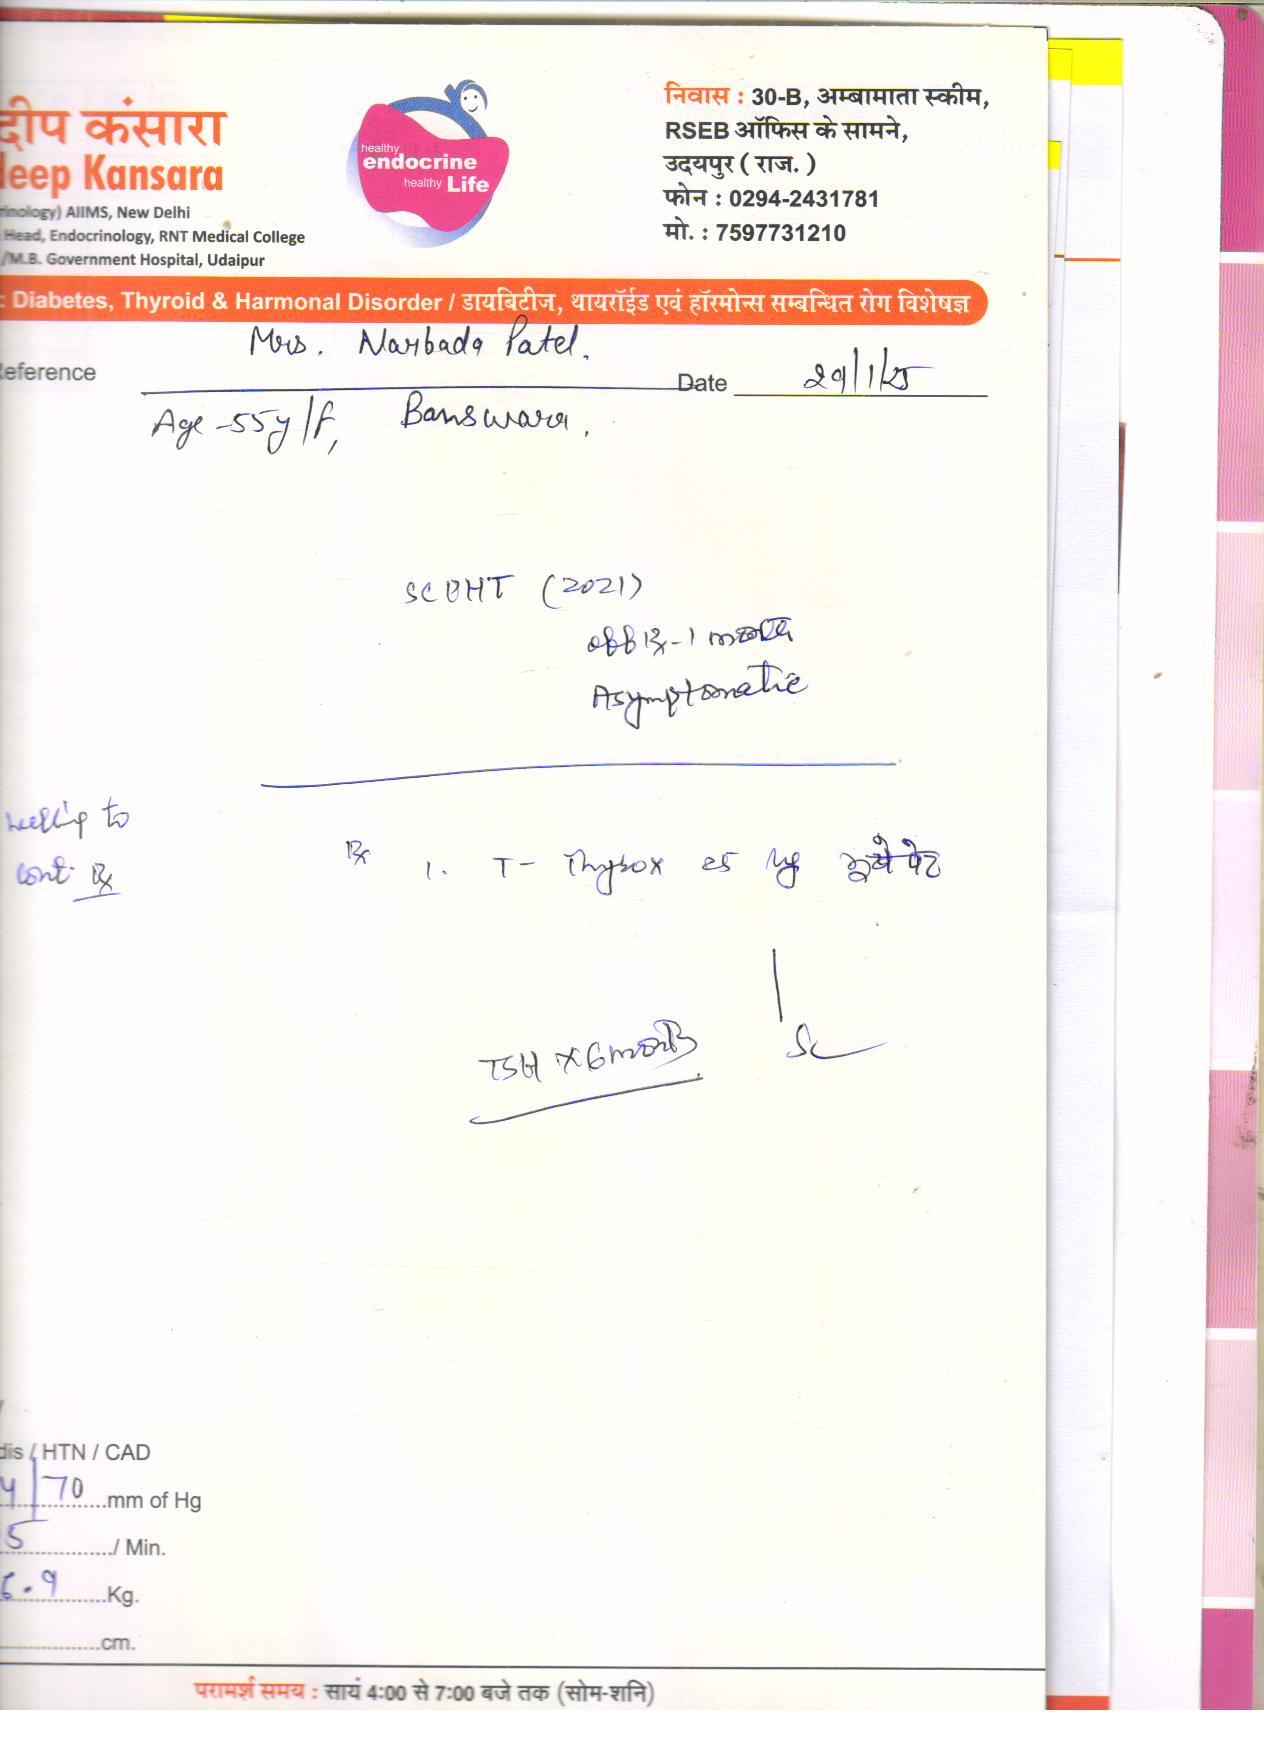 दीप कंसारा
deep Kansara
rinology) AIIMS, New Delhi
Head, Endocrinology, RNT Medical College
/M.B. Government Hospital, Udaipur
healthy
endocrine
healthy Life
निवास : 30-B, अम्बामाता स्कीम,
RSEB ऑफिस के सामने,
उदयपुर ( राज. )
फोन : 0294-2431781
मो. : 7597731210
: Diabetes, Thyroid & Harmonal Disorder / डायबिटीज, थायरॉईड एवं हॉरमोन्स सम्बन्धित रोग विशेषज्ञ
Mrs. Narbada Patel.
Reference
Date 29/1/25
Age - 55y/f, Banswara.
(2021)
off Rx - 1 month
Asymptomatic
willing to
cont. Rx
Rx 1. T- Thyrox 25 पेट
TSH x 6 months
dis / HTN / CAD
4/70 mm of Hg
5 / Min.
6.9 Kg.
cm.
परामर्श समय : सायं 4:00 से 7:00 बजे तक (सोम-शनि)